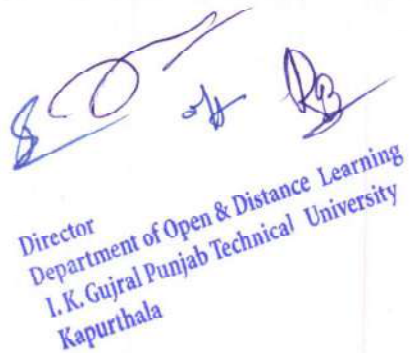 Director
Department of Open & Distance Learning
I. K. Gujral Punjab Technical University
Kapurthala